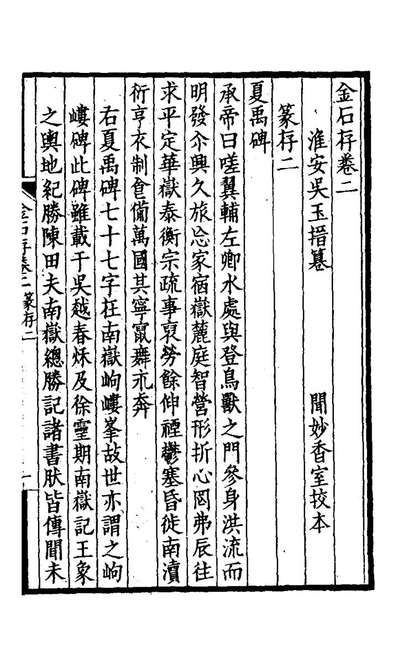 金石存卷二
淮安吳玉搢篹　聞妙香室挍本
篆存二
夏禹碑
承帝曰嗟翼輔左卿水處與登鳥獸之門參身洪流而
明發尒興久旅忘家宿嶽麓庭智營形折心罔弗辰往
求平定華嶽泰衡宗疏事裒勞餘伸禋鬱塞昏徙南瀆
衍亨衣制食備萬國其寧竄舞永奔
右夏禹碑七十七字在南嶽岣嶁峯故世亦謂之岣
嶁碑此碑雖載于吳越春秌及徐霊期南嶽記王象
之輿地紀勝陳田夫南嶽總勝記諸書肰皆傳聞未
金石存卷二 篆存二 一